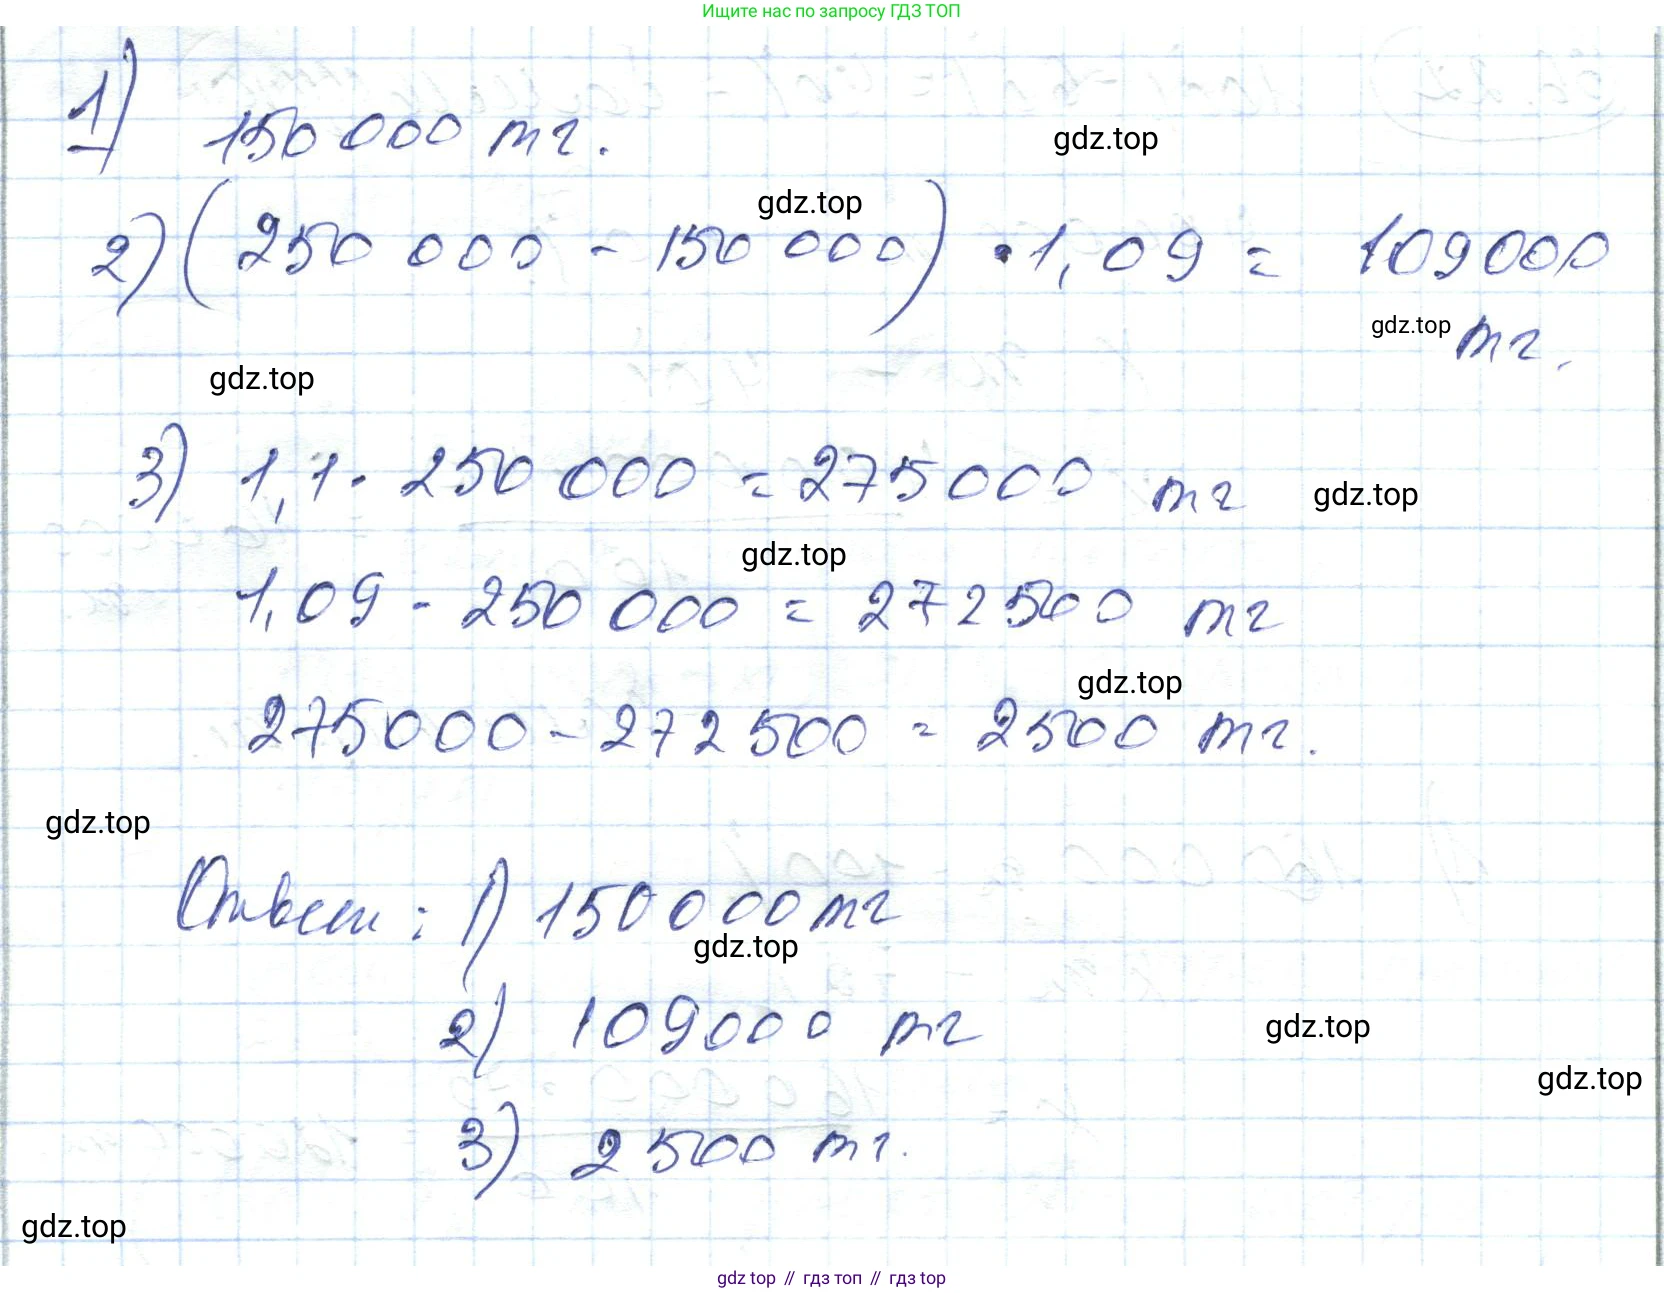 Ищите нас по запросу ГДЗ ТОП
1) 150 000 тг.
gdz.top
gdz.top
2) (250 000 - 150 000) · 1,09 = 109000
gdz.top тг.
gdz.top
3) 1,1 · 250 000 = 275000 тг
gdz.top
gdz.top
1,09 · 250 000 = 272500 тг
gdz.top
275000 - 272500 = 2500 тг.
gdz.top
Ответ: 1) 150000 тг
gdz.top
2) 109000 тг
gdz.top
gdz.top
3) 2500 тг.
gdz.top
gdz top // гдз топ // gdz top